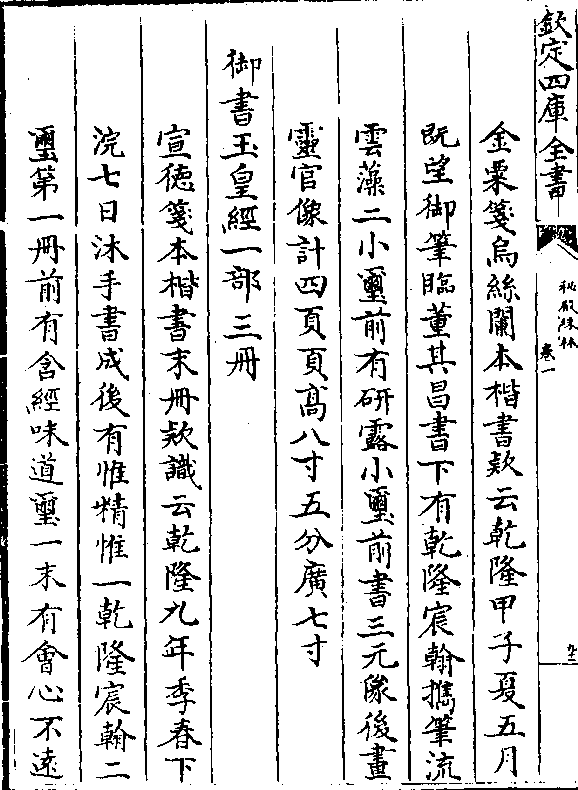 欽定四庫全書
秘殿珠林
卷一
金粟箋烏絲闌本楷書款云乾隆甲子夏五月
既望御筆臨董其昌書下有乾隆宸翰摛筆流
雲藻二小璽前有研露小璽前書三元像後畫
靈官像計四頁頁高八寸五分廣七寸
御書玉皇經一部三冊
宣徳箋本楷書末冊款識云乾隆九年季春下
浣七日沐手書成後有惟精惟一乾隆宸翰二
璽第一冊前有含經味道璽一末有會心不遠